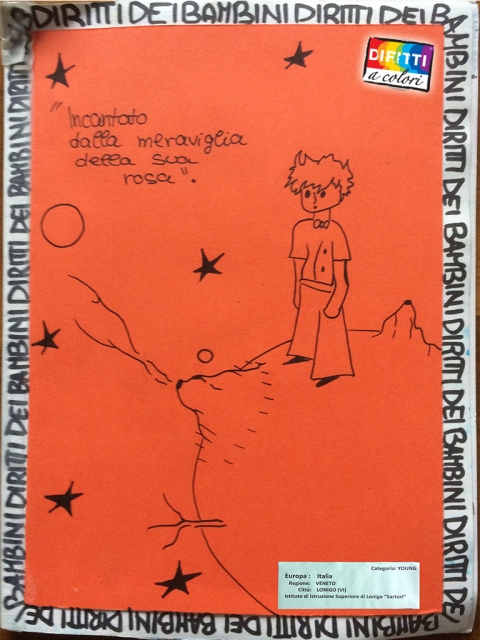 DIRITTI DEI BAMBINI DIRITTI DEI BAMBINI DIRITTI DEI BAMBINI DIRITTI DEI BAMBINI DIRITTI DEI
DIRITTI
a colori
"Incantato
dalla meraviglia
della sua
rosa".
Categoria: YOUNG
Europa : Italia
Regione: VENETO
Città: LONIGO (VI)
Istituto di Istruzione Superiore di Lonigo "Sartori"
DIRITTI DEI BAMBINI DIRITTI DEI BAMBINI DIRITTI DEI BAMBINI
BAMBINI DIRITTI DEI BAMBINI DIRITTI DEI BAMBINI DIRITTI DEI